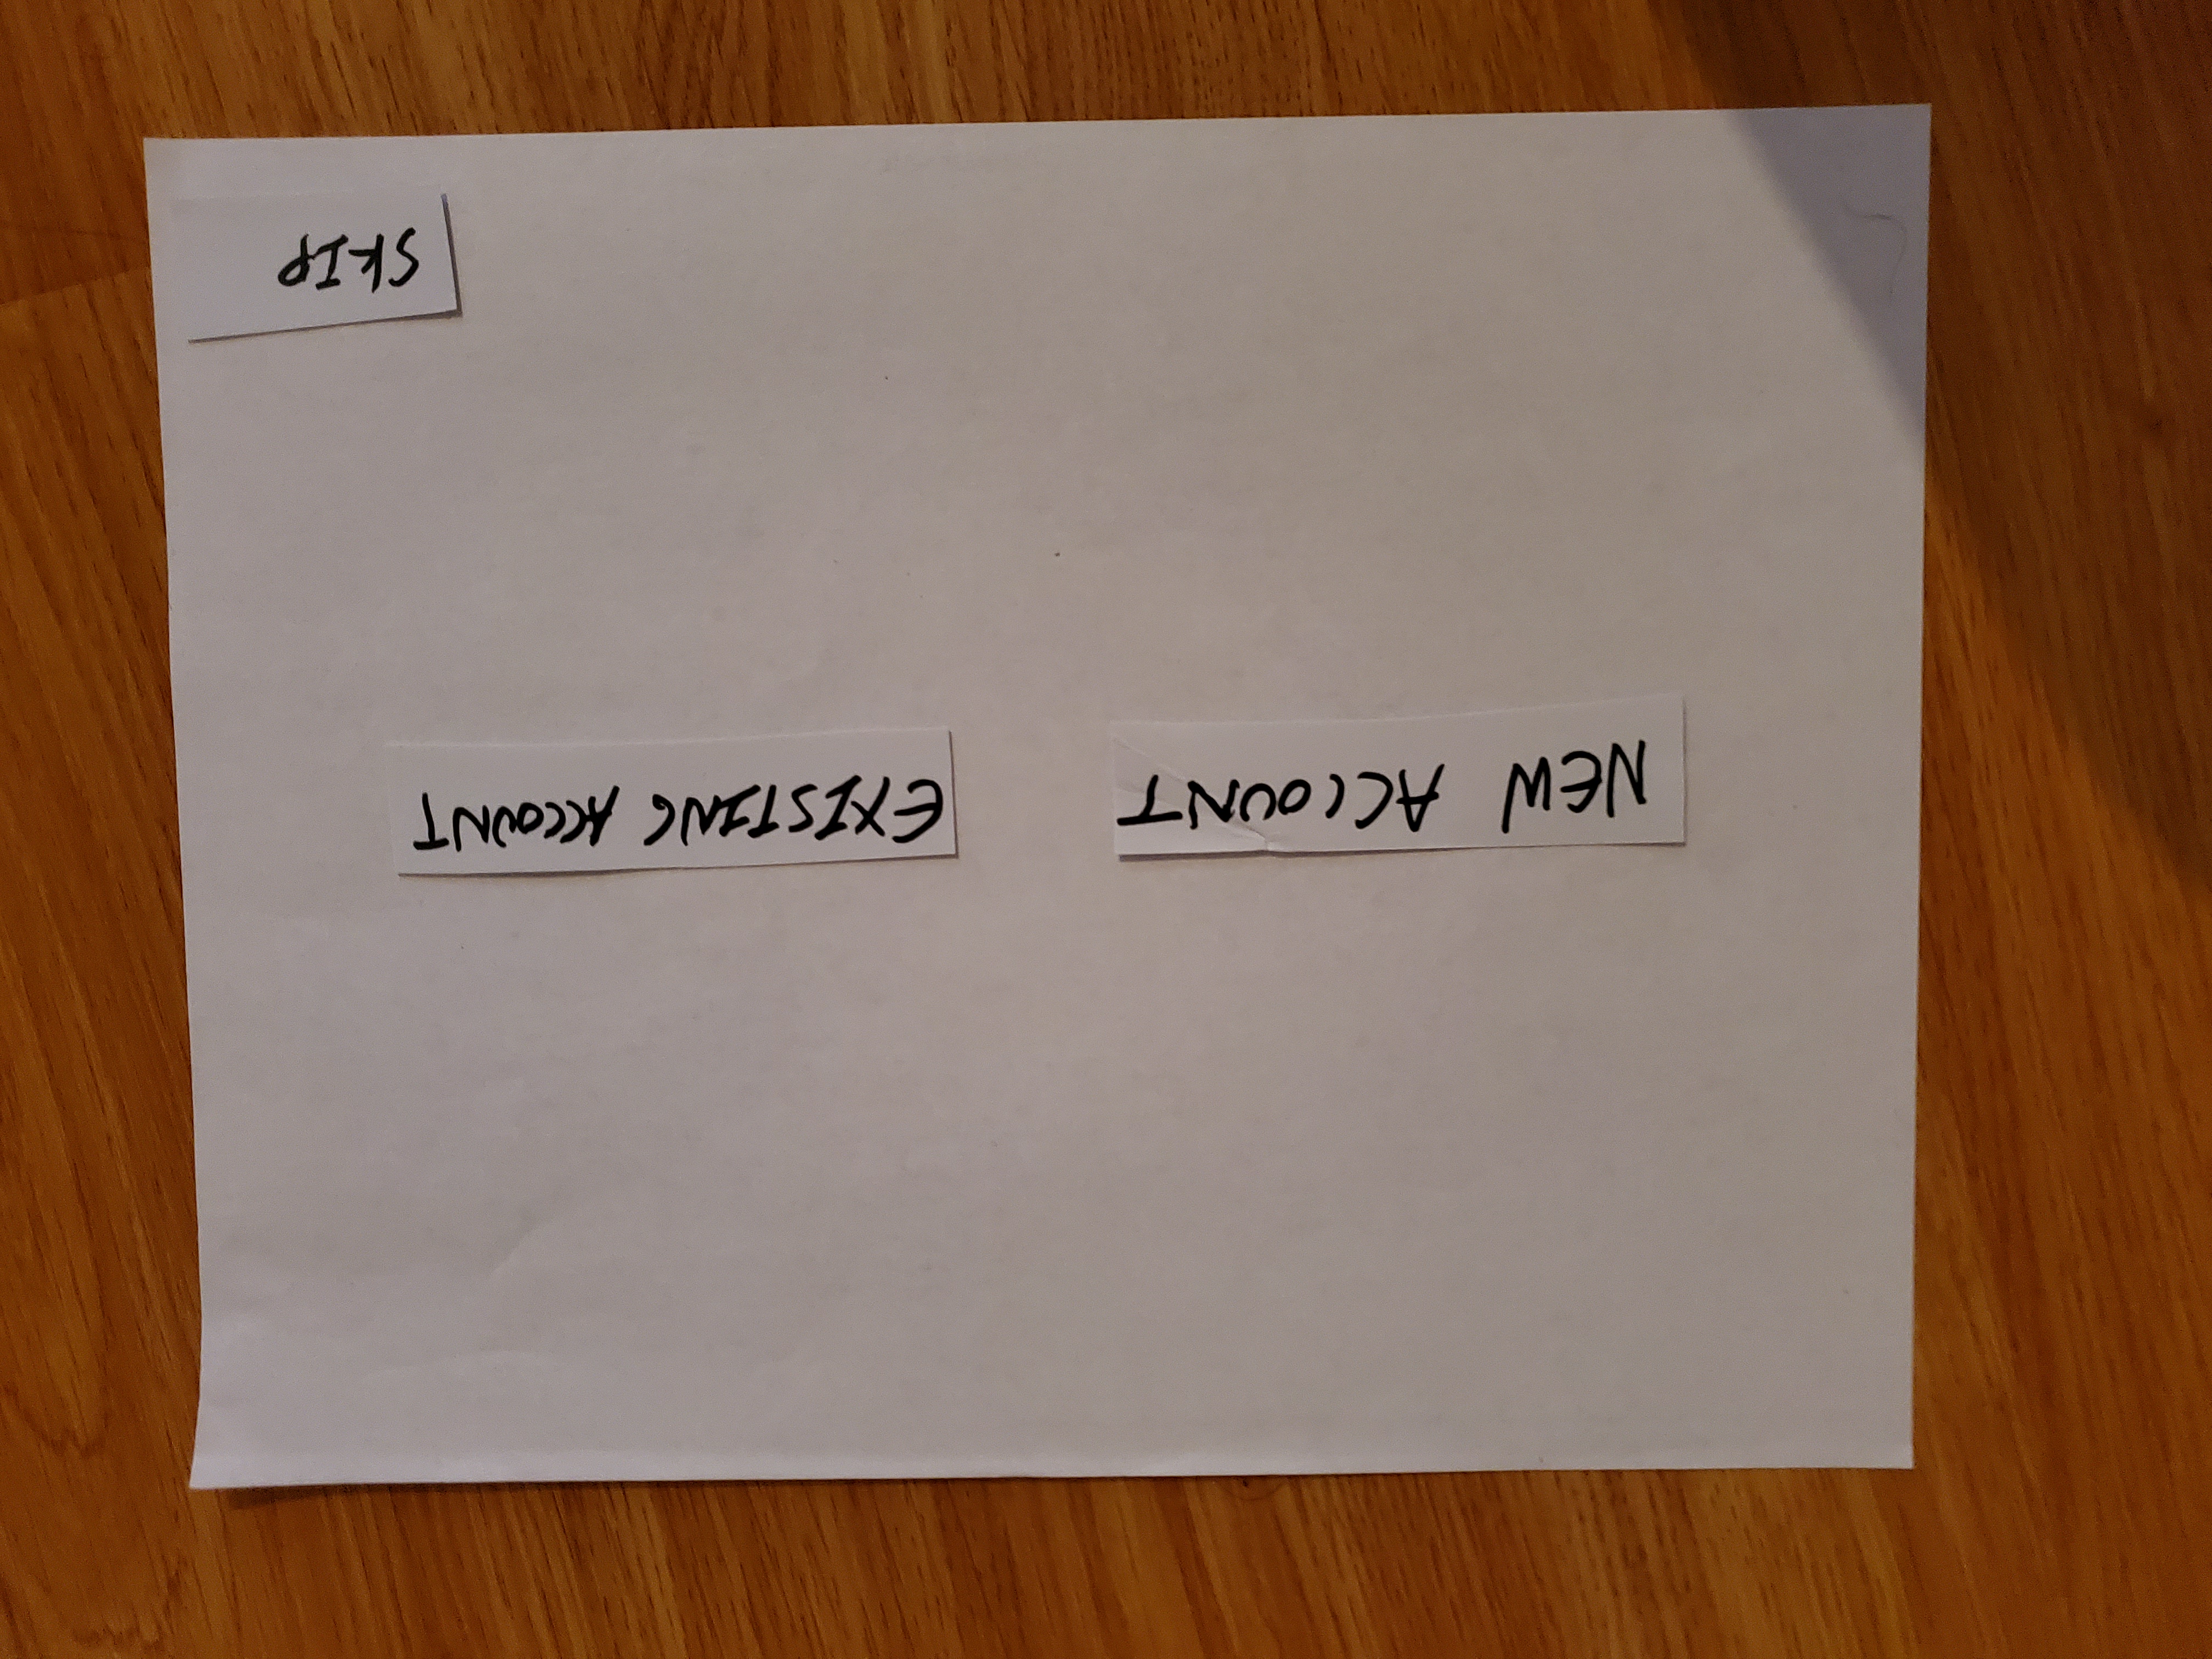 NEW ACCOUNT
EXISTING ACCOUNT
SKIP